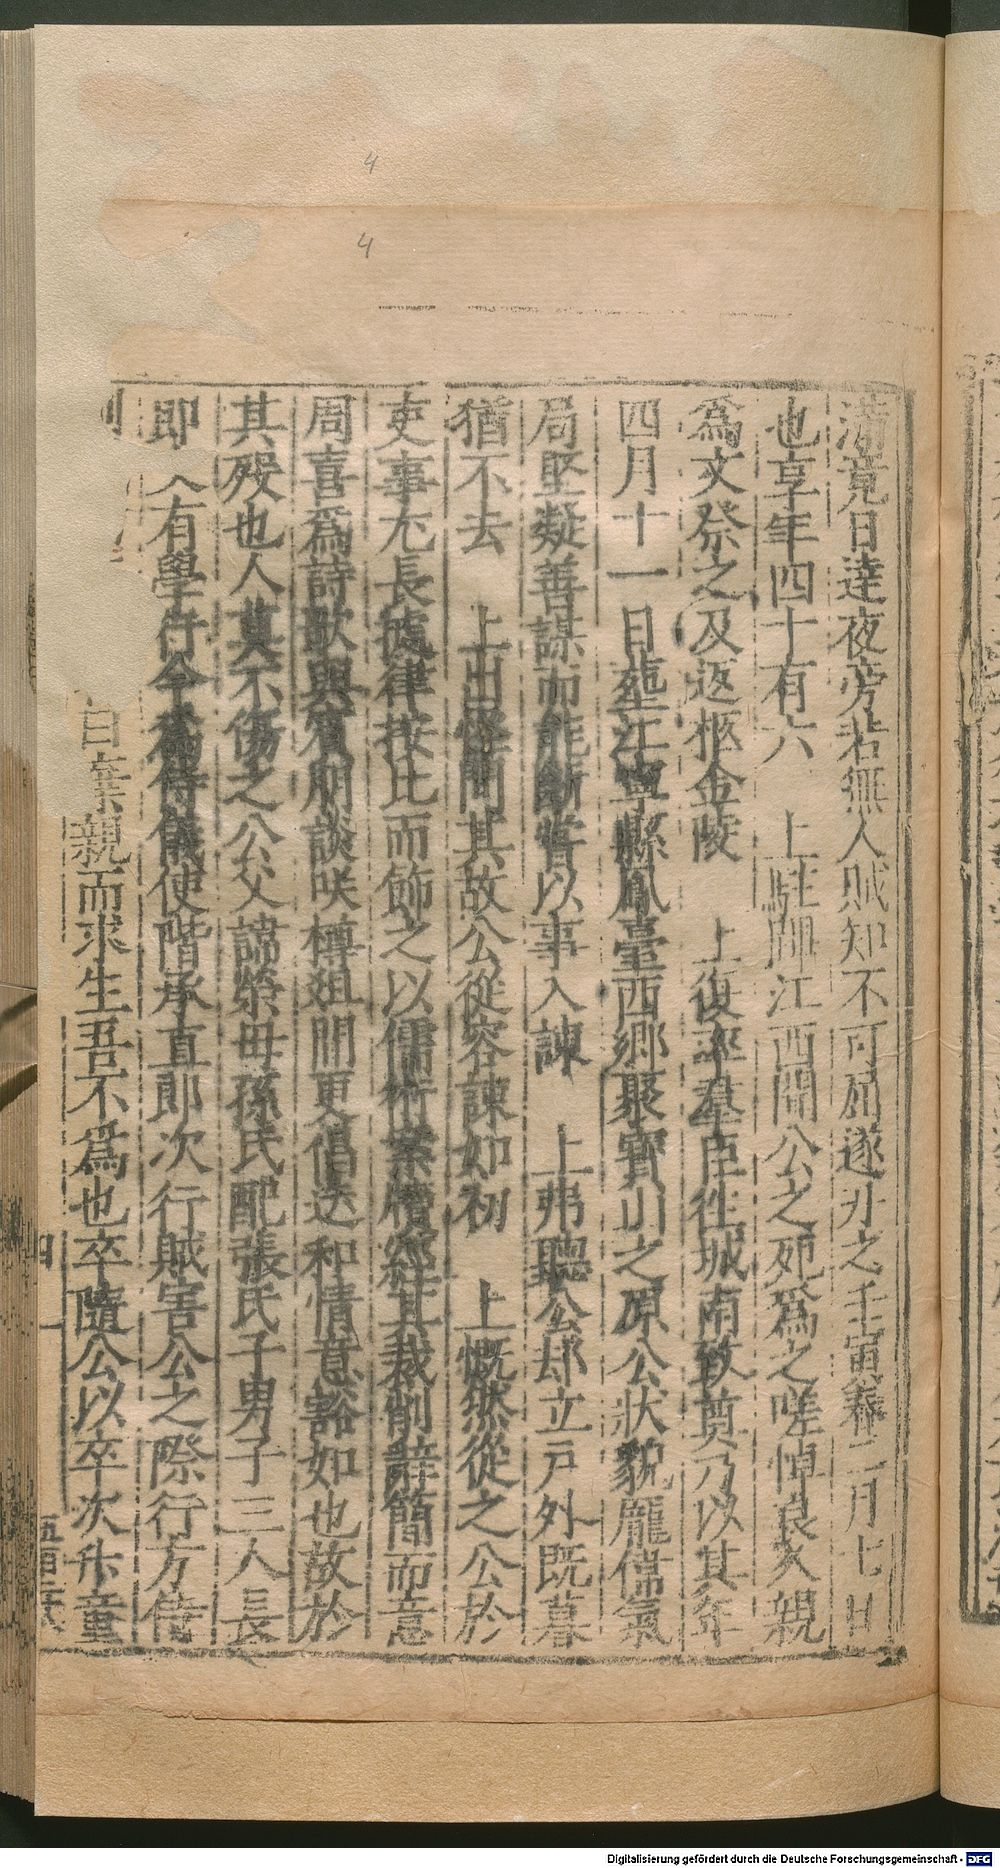 4
4
滿竟日達夜旁若無人賊知不可屈遂刃之壬寅春二月七日
也享年四十有六　上駐蹕江西聞公之死爲之嗟悼良久親
爲文祭之及返柩金陵　上復率羣臣徃城南致奠乃以其年
四月十一日塟江寧縣鳳臺西鄉聚寶山之原公狀貌龐偉氣
局堅凝善謀而能斷嘗以事入諫　上弗聽公却立戸外既暮
猶不去　上出怪問其故公從容諫如初　上慨然從之公於
吏事尤長據律按比而飾之以儒術案牘經其裁削辭簡而意
周喜爲詩歌與賓朋談咲樽爼間更倡迭和情意豁如也故於
其殁也人莫不傷之公父諱榮母孫氏配張氏子男子三人長
即　有學行今爲侍儀使階承直郎次行賊害公之際行方侍
自棄親而求生吾不爲也卒隨公以卒次升童
四
Digitalisierung gefördert durch die Deutsche Forschungsgemeinschaft - DFG